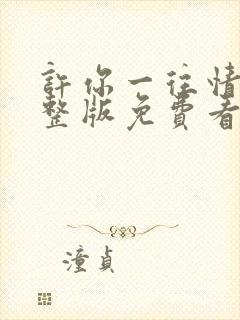 許你一往情
整版免費看
潼貞